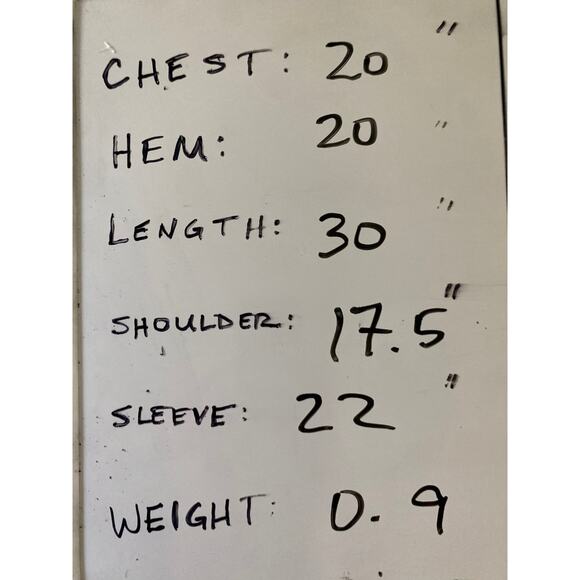 CHEST: 20 "
HEM: 20 "
LENGTH: 30 "
SHOULDER: 17.5"
SLEEVE: 22 "
WEIGHT: 0.9